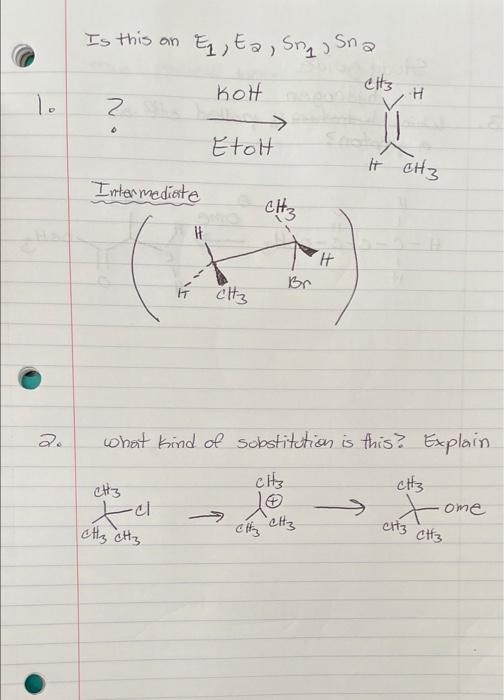 Is this an E1, E2, Sn1, Sn2
1. ? KOH
EtOH
CH3 H
H CH3
Intermediate
CH3
H
H
Br
H CH3
2. what kind of substitution is this? Explain
CH3 CH3 CH3
Cl ⊕ ome
CH3 CH3 CH3 CH3 CH3 CH3